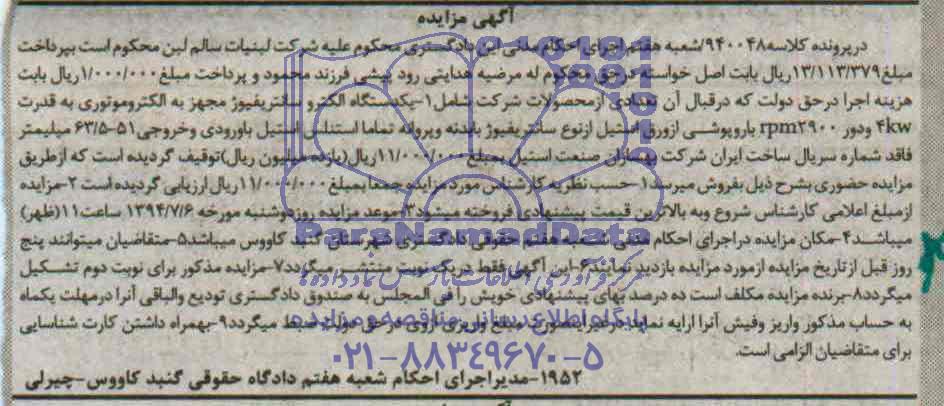 آگهی مزایده
درپرونده کلاسه ۹۴۰۰۴۸/شعبه هفتم اجرای احکام مدنی این دادگستری محکوم علیه شرکت لبنیات سالم لبن محکوم است بپرداخت
مبلغ ۱۳/۱۱۳/۳۷۹ریال بابت اصل خواسته درحق محکوم له مرضیه هدایتی رود پیشی فرزند محمود و پرداخت مبلغ ۱/۰۰۰/۰۰۰ریال بابت
هزینه اجرا درحق دولت که درقبال آن تعدادی ازمحصولات شرکت شامل ۱-یکدستگاه الکترو سانتریفیوژ مجهز به الکتروموتوری به قدرت
۴kw ودور ۲۹۰۰rpm باروپوشی ازورق استیل ازنوع سانتریفیوژ بابدنه وپروانه تماما استنلس استیل باورودی وخروجی ۵۱-۶۳/۵ میلیمتر
فاقد شماره سریال ساخت ایران شرکت بهسازان صنعت استیل بمبلغ ۱۱/۰۰۰/۰۰۰ریال(یازده میلیون ریال)توقیف گردیده است که ازطریق
مزایده حضوری بشرح ذیل بفروش میرسد ۱-حسب نظریه کارشناس مورد مزایده جمعا بمبلغ ۱۱/۰۰۰/۰۰۰ریال ارزیابی گردیده است ۲-مزایده
ازمبلغ اعلامی کارشناس شروع وبه بالاترین قیمت پیشنهادی فروخته میشود۳-موعد مزایده روزدوشنبه مورخه ۱۳۹۴/۷/۶ ساعت۱۱(ظهر)
میباشد۴-مکان مزایده دراجرای احکام مدنی شعبه هفتم حقوقی دادگستری شهرستان گنبد کاووس میباشد۵-متقاضیان میتوانند پنج
روز قبل ازتاریخ مزایده ازمورد مزایده بازدید نمایند۶-این آگهی فقط دریک نوبت منتشر میگردد۷-مزایده مذکور برای نوبت دوم تشکیل
میگردد۸-برنده مزایده مکلف است ده درصد بهای پیشنهادی خویش را فی المجلس به صندوق دادگستری تودیع والباقی آنرا درمهلت یکماه
به حساب مذکور واریز وفیش آنرا ارایه نماید درغیراینصورت مبلغ واریزی ازوی درحق دولت ضبط میگردد۹-بهمراه داشتن کارت شناسایی
برای متقاضیان الزامی است.
۱۹۵۲-مدیراجرای احکام شعبه هفتم دادگاه حقوقی گنبد کاووس-چیرلی
ParsNamadData
پایگاه اطلاع رسانی مناقصه و مزایده
۰۲۱-۸۸۳۴۹۶۷۰-۵